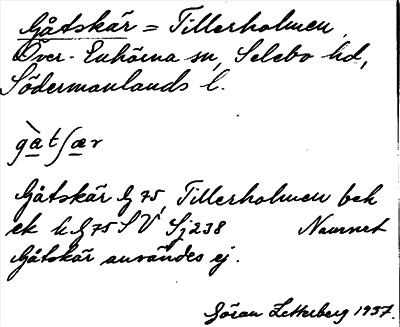 Gåtskär = Tillerholmen,
Över-Enhörna sn, Selebo hd,
Södermanlands l.
gàtʃær
Gåtskär G 75, Tillerholmen bek
ek k. G 75 S V, Sj 238 Namnet
Gåtskär användes ej.
Göran Zetterberg 1937.